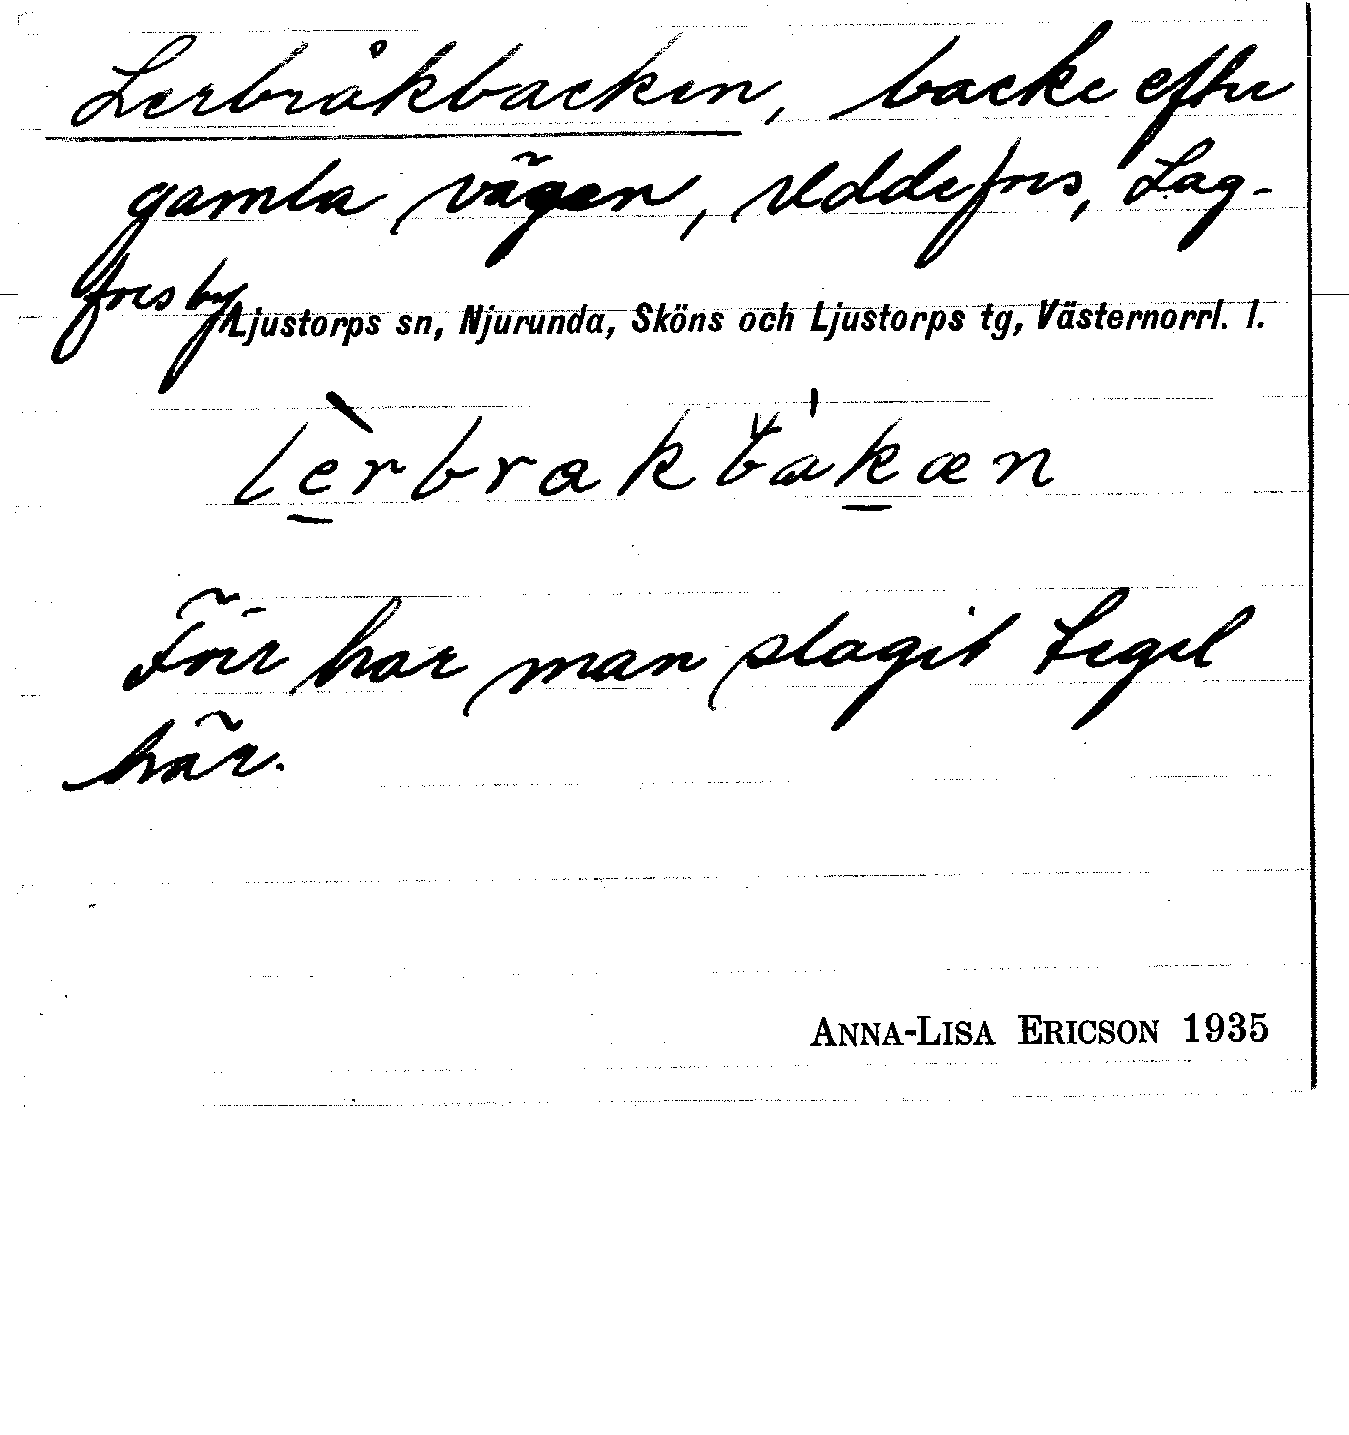 Lerbråkbacken, backe efter
gamla vägen, Uddefors, Lag-
fors by
Ljustorps sn, Njurunda, Sköns och Ljustorps tg, Västernorrl. l.
lèrbrakbakæn
Förr har man slagit tegel
här.
ANNA-LISA ERICSON 1935